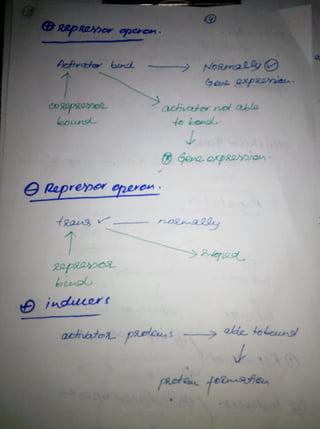 ④
⊕ repressor operon.
Activator bind → Normally ✓
Gene expression.
corepressor
bound
activator not able
to bond.
↓
ⓧ Gene expression.
⊖ Repressor operon.
trans ✓ — normally
stoped
repressor
bind
⊕ inducers
activator proteins → able tobound
↓
protein formation